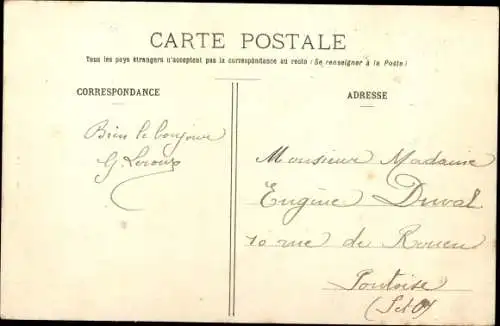 CARTE POSTALE
Tous les pays étrangers n'acceptent pas la correspondance au recto (Se renseigner à la Poste)
CORRESPONDANCE
ADRESSE
Bien le bonjour
G. Leroux
Monsieur Madame
Eugène Duval
10 rue de Rouen
Pontoise
(S et O)